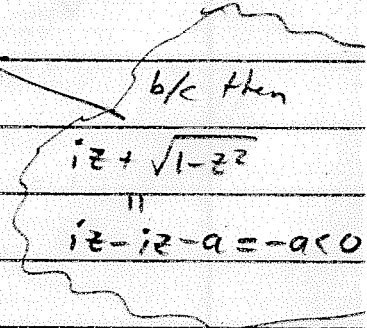 b/c then
iz + √(1-z²)
=
iz - iz - a = -a < 0